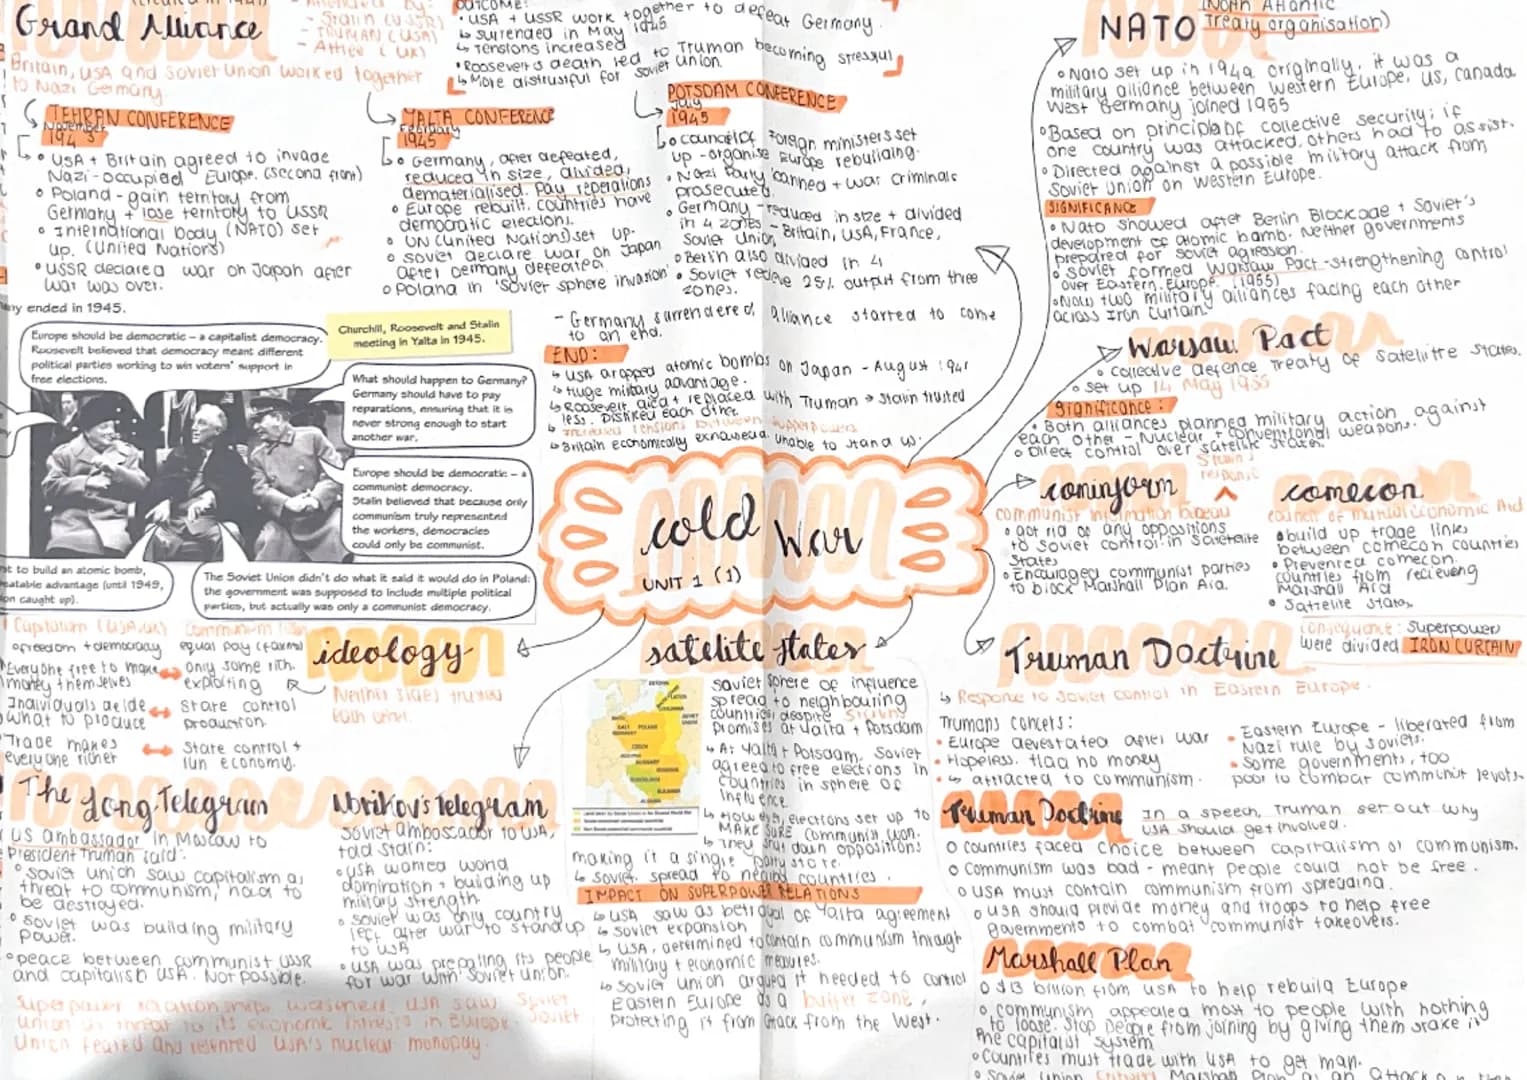 Grand Alliance
- Stalin (USSR)
- TRUMAN (USA)
- Attlee (UK)
Britain, USA and Soviet Union worked together
to Nazi Germany
TEHRAN CONFERENCE
November
1943
USA + Britain agreed to invade
Nazi-occupied Europe. (second front)
Poland - gain territory from
Germany + lose territory to USSR
International body (NATO) set
up. (United Nations)
USSR declared war on Japan after
war was over.
OUTCOME:
USA + USSR work together to defeat Germany.
surrended in May 1945
Tensions increased
Roosevelt's death led to Truman becoming
More distrustful for soviet union.
YALTA CONFERENCE
February
1945
Germany, after defeated,
reduced in size, divided,
dematerialised. Pay reperations
Europe rebuilt. countries have
democratic elections.
UN (united Nations) set up.
Soviet declare war on Japan
after Germany defeated.
Poland in 'Soviet sphere invasion'
POTSDAM CONFERENCE
July
1945
council of Foreign ministers set
up - organise Europe rebuilding.
Nazi Party banned + war criminals
prosecuted.
Germany - reduced in size + divided
in 4 zones - Britain, USA, France,
Soviet Union
Berlin also divided in 4
Soviet recieve 25% output from three
zones.
- Germany surrendered, alliance started to come
to an end.
END:
USA dropped atomic bombs on Japan - August 1945
Huge military advantage.
Roosevelt died + replaced with Truman → Stalin trusted
less. Disliked each other.
Increased tensions between superpowers
Britain economically exhausted. Unable to stand up.
any ended in 1945.
Europe should be democratic – a capitalist democracy.
Roosevelt believed that democracy meant different
political parties working to win voters' support in
free elections.
Churchill, Roosevelt and Stalin
meeting in Yalta in 1945.
What should happen to Germany?
Germany should have to pay
reparations, ensuring that it is
never strong enough to start
another war.
Europe should be democratic – a
communist democracy.
Stalin believed that because only
communism truly represented
the workers, democracies
could only be communist.
to build an atomic bomb,
eatable advantage (until 1949,
on caught up).
The Soviet Union didn't do what it said it would do in Poland:
the government was supposed to include multiple political
parties, but actually was only a communist democracy.
cold War
UNIT 1 (1)
NATO
(North Atlantic
Treaty organisation)
Nato set up in 1949 originally, it was a
military alliance between Western Europe, US, Canada
West Germany joined 1955
Based on principle of collective security; if
one country was attacked, others had to assist.
Directed against a possible military attack from
Soviet Union on Western Europe.
SIGNIFICANCE
Nato showed after Berlin Blockade + Soviet's
development of atomic bomb. Neither governments
prepared for Soviet agression.
Soviet formed Warsaw Pact - strengthening control
over Eastern Europe. (1955)
Now two military alliances facing each other
across Iron Curtain
Warsaw Pact
collective defence treaty of Satellite states.
set up 14 May 1955
Significance:
Both alliances planned military action against
each other - Nuclear + conventional weapons.
Direct control over satellite states.
Stalin's
response
cominform
communist information bureau
got rid of any oppositions
to Soviet control in Satetelite
States
Encouraged communist parties
to block Marshall Plan Aid.
comecon
council of mutual economic Aid
build up trade links
between comecon countries
Prevented comecon
countries from recieveng
Marshall Aid
Satellite states
consequence: Superpower
were divided IRON CURTAIN
Truman Doctrine
Response to Soviet control in Eastern Europe.
Trumans concers:
Europe devestated after war
Hopeless. Had no money
attracted to communism.
Eastern Europe - liberated from
Nazi rule by soviets.
Some governments, too
poor to combat communist
Truman Doctrine
In a speech, Truman set out why
USA should get involved.
countries faced choice between capitalism or communism.
communism was bad - meant people could not be free.
USA must contain communism from spreading.
USA should provide money and troops to help free
governments to combat communist takeovers.
Marshall Plan
$13 billion from USA to help rebuild Europe
communism appealed most to people with nothing
to loose. Stop people from joining by giving them stake in
the capitalist system
Countries must trade with USA to get
Soviet Union Marshall Plan as an attack
ideology
Capitalism (USA, UK)
freedom + democracy
Everyone free to make
money themselves
Individuals decide
what to produce
Trade makes
everyone richer
Communism
equal pay
only some rich.
exploiting
State control
production.
State control +
run economy.
Neither sides trusted
each other.
satelite states
soviet sphere of influence
spread to neighbouring
countries despite Stalins
promises at Yalta + Potsdam
At Yalta + Potsdam, Soviet
agreed to free elections in
countries in sphere of
Influence.
However, elections set up to
MAKE SURE communist won.
They shut down oppositions
making it a single party state.
Soviet. spread to nearing countries.
IMPACT ON SUPERPOWER RELATIONS
USA saw as betrayal of Yalta agreement
Soviet expansion
USA, determined to contain communism through
military + economic measures.
Soviet Union argued it needed to control
Eastern Europe as a buffer zone,
protecting it from attack from the West.
The Long Telegram
US ambassador in Moscow to
President Truman said:
soviet union saw capitalism as
threat to communism, had to
be destroyed.
Soviet was building military
power.
peace between communist USSR
and capitalist USA. Not possible.
Novikov's telegram
Soviet ambassador to USA,
told Stalin:
USA wanted world
domination + building up
military strength
Soviet was only country
left after war to stand up
to USA
USA was preparing its people
for war with Soviet Union.
Superpower relationships USA saw Soviet
Union as threat to its economic intrests in Europe. Soviet
Union feared and resented USA's nuclear monopoly.